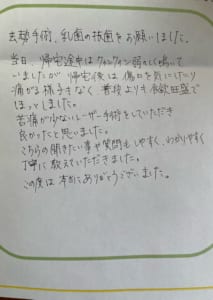 去勢手術、乳歯の抜歯をお願いしました。
当日、帰宅途中はクィンクィン弱々しく鳴いて
いましたが帰宅後は傷口を気にしたり
痛がる様子もなく普段よりも食欲旺盛で
ほっとしました。
苦痛が少ないレーザー手術をしていただき
良かったと思いました。
こちらの聞きたい事や質問もしやすく、わかりやすく
丁寧に教えていただきました。
この度は本当にありがとうございました。